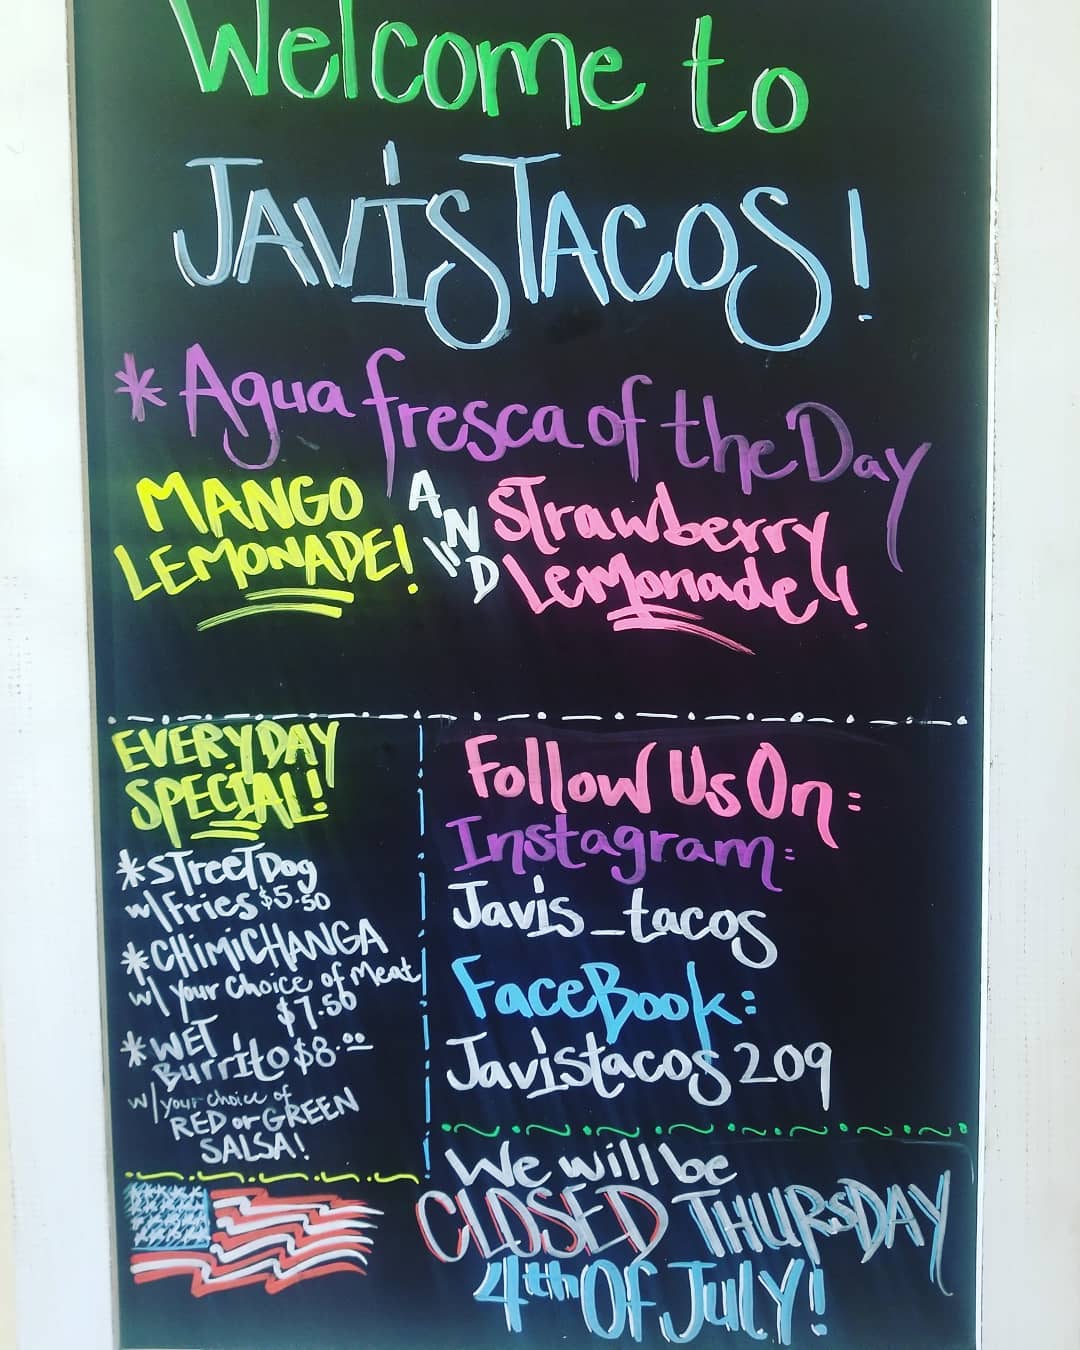 Welcome to
JAVIS TACOS!
* Agua fresca of the Day
MANGO
LEMONADE!
AND
Strawberry
Lemonade!
EVERYDAY
SPECIAL!
* Street Dog
w/ Fries $5.50
* CHIMICHANGA
w/ Your Choice of Meat
$7.50
* WET
Burrito $8.00
w/ your choice of
RED or GREEN
SALSA!
Follow Us On:
Instagram:
Javis_tacos
FaceBook:
Javistacos209
We will be
CLOSED THURSDAY
4th Of July!